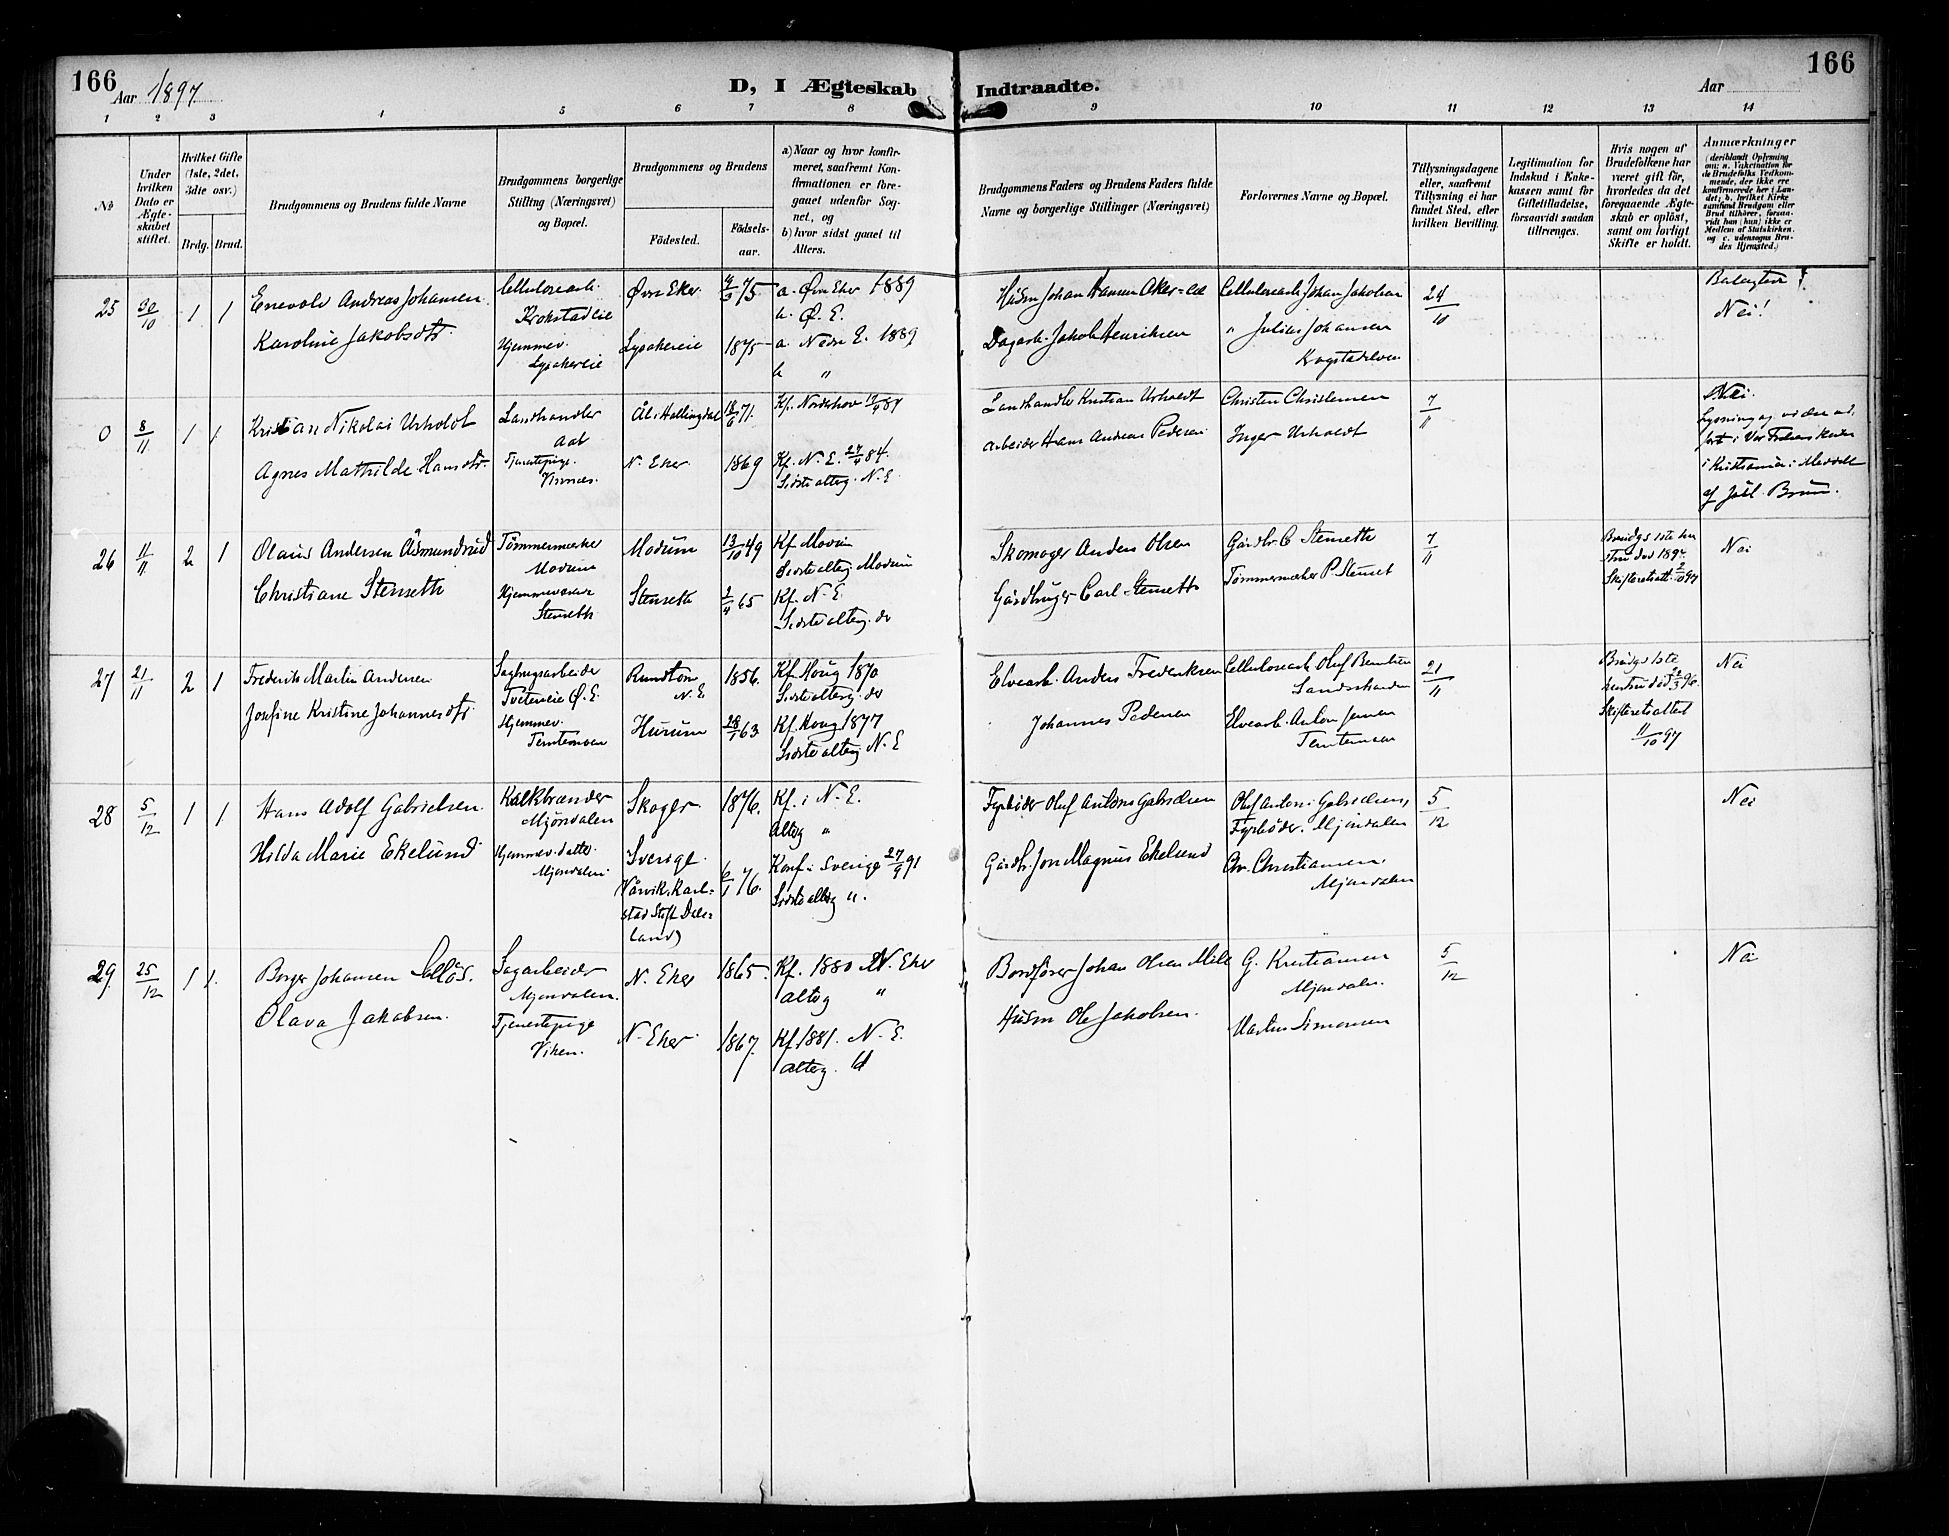 166
Aar 1897
D, I Ægteskab Indtraadte.
Aar
166
1 2 3 4 5 6 7 8 9 10 11 12 13 14
No
Under
hvilken
Dato er
Ægte-
skabet
stiftet.
Hvilket Gifte
(1ste, 2det,
3die osv.)
Brdg. Brud.
Brudgommens og Brudens fulde Navne
Brudgommens borgerlige
Stilling (Næringsvei)
og Bopæl.
Brudgommens og Brudens
Fødested.
Fødsels-
aar.
a) Naar og hvor konfir-
meret, saafremt Kon-
firmationen er fore-
gaaet udenfor Sog-
net, og
b) hvor sidst gaaet til
Alters.
Brudgommens Faders og Brudens Faders fulde
Navne og borgerlige Stillinger (Næringsvei)
Forlovernes Navne og Bopæl.
Tillysningsdagene
eller, saafremt
Tillysning ei har
fundet Sted, efter
hvilken Bevilling.
Legitimation for
Indskud i Enke-
kassen samt for
Giftetilladelse,
forsaavidt saadan
tiltrænges.
Hvis nogen af
Brudefolkene har
været gift før,
hvorledes da det
foregaaende Ægte-
skab er opløst,
samt om lovligt
Skifte er holdt.
Anmærkninger
(deriblandt Oplysning
om: a. Vakcination for
de Brudefolks Vedkom-
mende, der ikke ere
konfirmerede her i Lan-
det; b. hvilket Kirke
samfund Brudgom eller
Brud tilhører, forsaa-
vidt han (hun) ikke er
Medlem af Statskirken,
og c. udensogns Bru-
des Hjemsted.)
25 30/10 1 1
Enevold Andreas Johansen
Karoline Jakobsdtr.
Cellulosearb.
Krokstadeie
Hjemmev.
Lysakereie
Øvre Eker
75
Lysakereie 1875
a. Øvre Eker 1889
b. Ø. E.
a. Nedre E. 1889
b "
Husm Johan Hansen Aker-
Dagarb. Jakob Henriksen
Cellulosearb. Johan Jakobsen
" Julius Johansen
24/10
Nei!
0 8/11 1 1
Kristian Nikolai Urholdt
Agnes Mathilde Hansdtr.
Landhandler
Aal
Tjenestepige
Ål i Hallingdal 71.
N. Eker 1869
Kf. Norderhov 87
Kf. N. E. 84.
Sidste alterg. N. E
Landhandler Kristian Urholdt
Arbeider Hans Andreas Pedersen
Christen Christensen
Inger Urholdt
7/11
Nei.
i Vor Frelsers Kirke
i Kristiania i
26 11/11 2 1
Olaus Andersen Åsmundrud
Christiane Stenseth
Tømmermærker
Modum
Hjemmeværende
Stenseth
Modum 13/10 49
Stenseth 65
Kf Modum
Sidste alterg. Modum
Kf. N. E.
Sidste alterg. do
Skomager Anders Olsen
Gårdbruger Carl Stenseth
Gårdbr. C Stenseth
Tømmermærker P. Stenset
7/11
Brudgs 1ste hu
Skifteretsatt. 97
Nei
27 21/11 2 1
Frederik Martin Andersen
Josefine Kristine Johannesdtr.
Sagbrugsarbeider
Tvetereie Ø. E.
Hjemmev.
Temtemoen
N. E 1856.
Hurum 28/1 63
Kf. Houg 1870
Sidste alterg. do
Kf. Houg 1877
Sidste alterg. N. E
Elvearb. Anders Frederiksen
Johannes Pedersen
Cellulosearb. Oluf Berntsen
Elvearb. Anton Jensen
Temtemoen
21/11
Brudgs 1ste
hustru død 2/3 96.
Skifteretsattest
11/10 97
Nei
28 5/12 1 1
Hans Adolf Gabrielsen
Hilda Marie Ekelund
Kalkbrænder
Mjøndalen
Hjemmev. datter
Mjøndalen
Skoger 1876.
Sverige
Karl-
stad Stift Dals-
land) 6/1 76.
Kf. i N. E.
alterg "
Konf. i Sverige 27/9 91
Sidste alterg ".
Fyrbøder Oluf Antons Gabrielsen
Gårdbr. Jon Magnus Ekelund
Oluf Anton Gabrielsen,
Fyrbøder. Mjøndalen
Chr. Christiansen.
Mjøndalen
5/12
Nei
29 25/12 1 1.
Borger Johansen
Olava Jakobsen.
Sagarbeider
Mjøndalen.
Tjenestepige
Viken.
N. Eker 1865.
N. Eker 1867.
Kf. 1880 N. Eker
alterg "
Kf. 1881. N. E.
alterg. id
Bordfører Johan Olsen Mile
Husm Ole Jakobsen.
G. Kristiansen
Mjøndalen.
Martin Simonsen
5/12
Nei